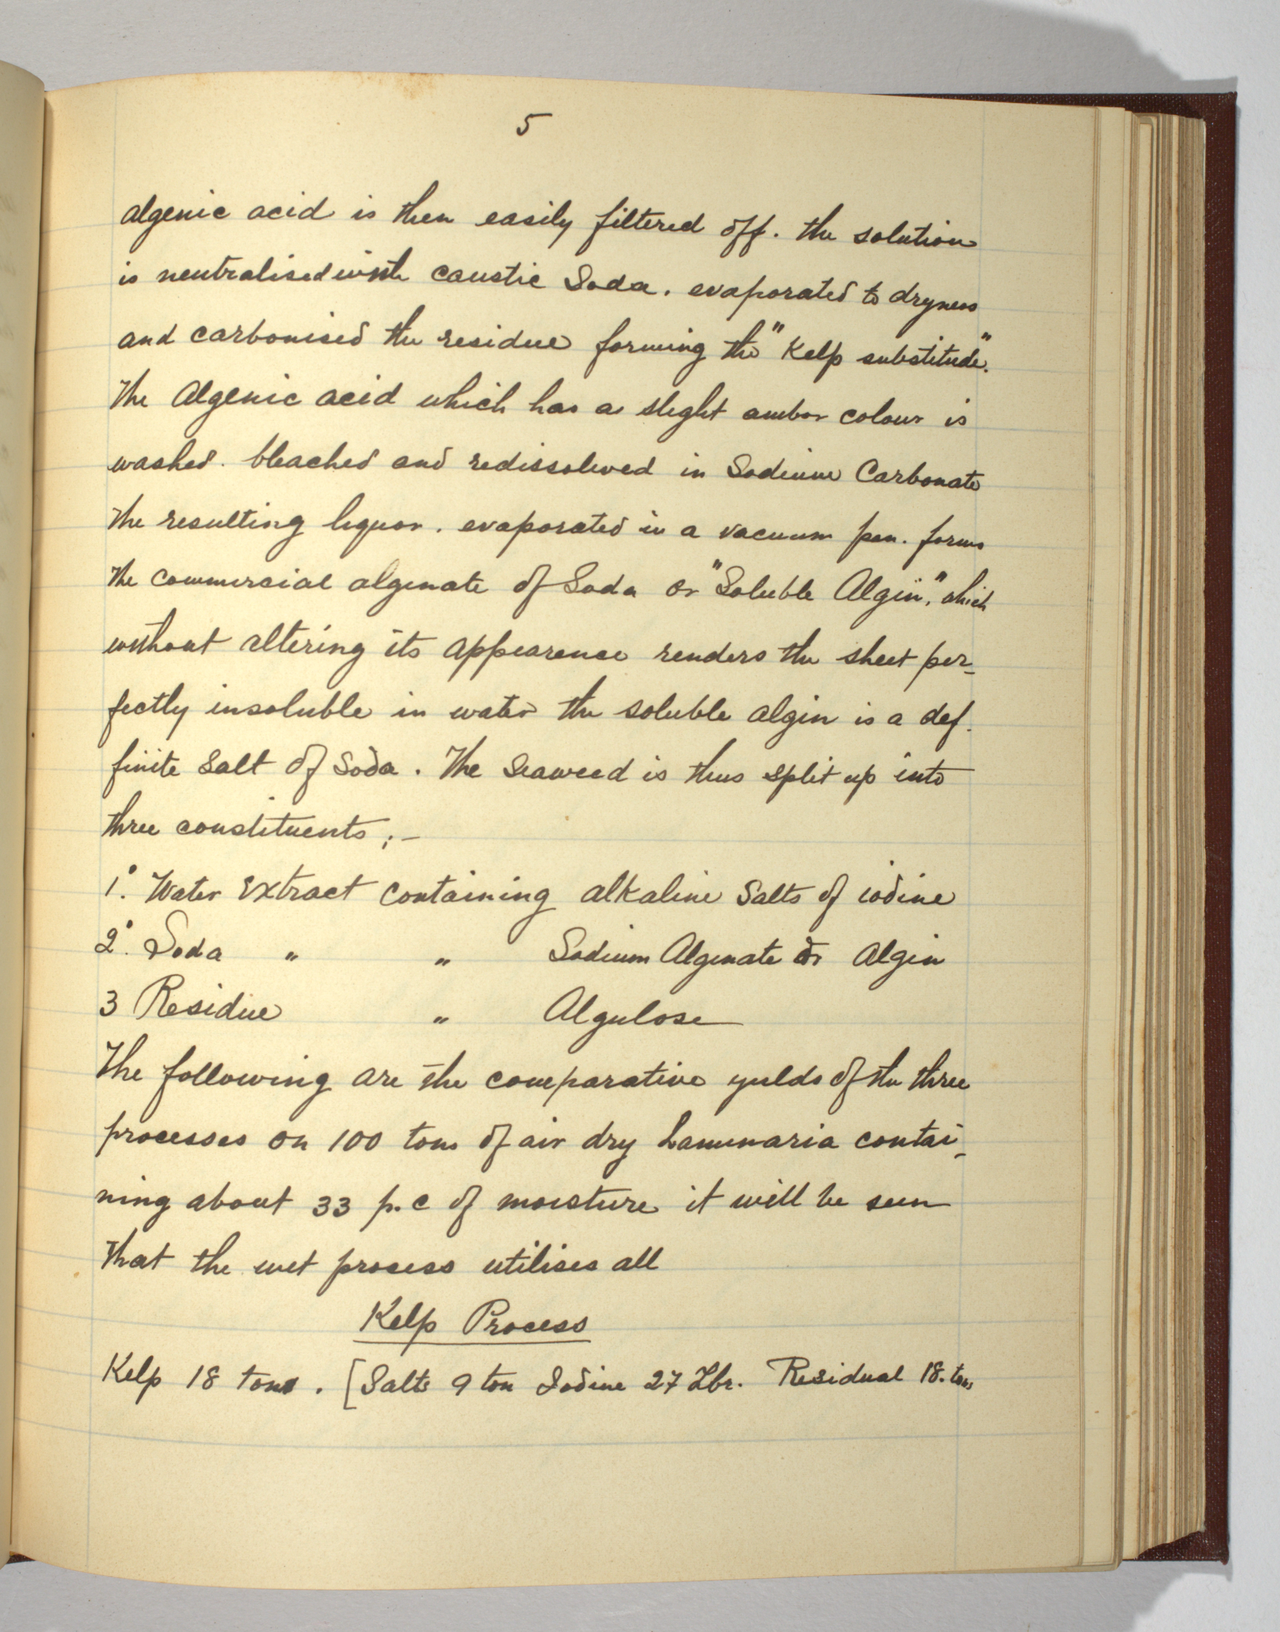 5
algenic acid is then easily filtered off. the solution
is neutralised with caustic Soda. evaporated to dryness
and carbonised the residue forming the "Kelp substitude".
The Algenic acid which has a slight amber colour is
washed. bleached and redissolved in Sodium Carbonate
The resulting liquor. evaporated in a vacuum pan. forms
the commercial alginate of Soda or "Soluble Algin," which
without altering its appearence renders the sheet per-
fectly insoluble in water the soluble algin is a def.
finite Salt of Soda. The Seaweed is thus split up into
three constituents ;—
1°. Water Extract Containing alkaline Salts of iodine
2°. Soda " " Sodium Alginate or Algin
3 Residue " Algulose
The following are the comparative yulds of the three
processes on 100 tons of air dry Laminaria contai-
ning about 33 p.c of moisture it will be seen
that the wet process utilises all
Kelp Process
Kelp 18 tons. [Salts 9 ton Iodine 27 Lbr. Residual 18. tons